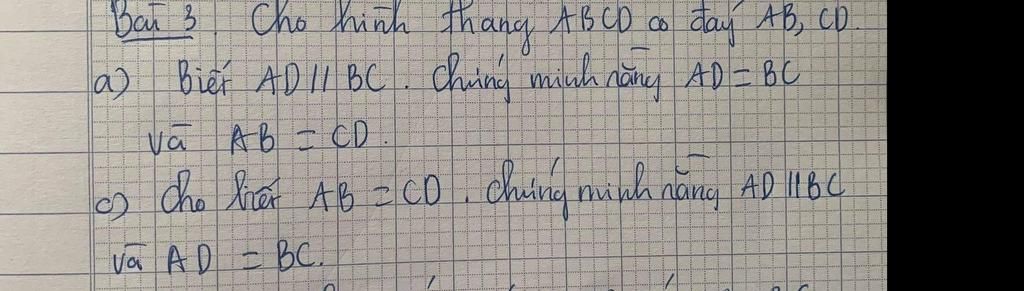 Bài 3 Cho hình thang ABCD có đáy AB, CD.
a) Biết AD // BC. Chứng minh rằng AD = BC
và AB = CD.
c) Cho biết AB = CD. chứng minh rằng AD // BC
và AD = BC.